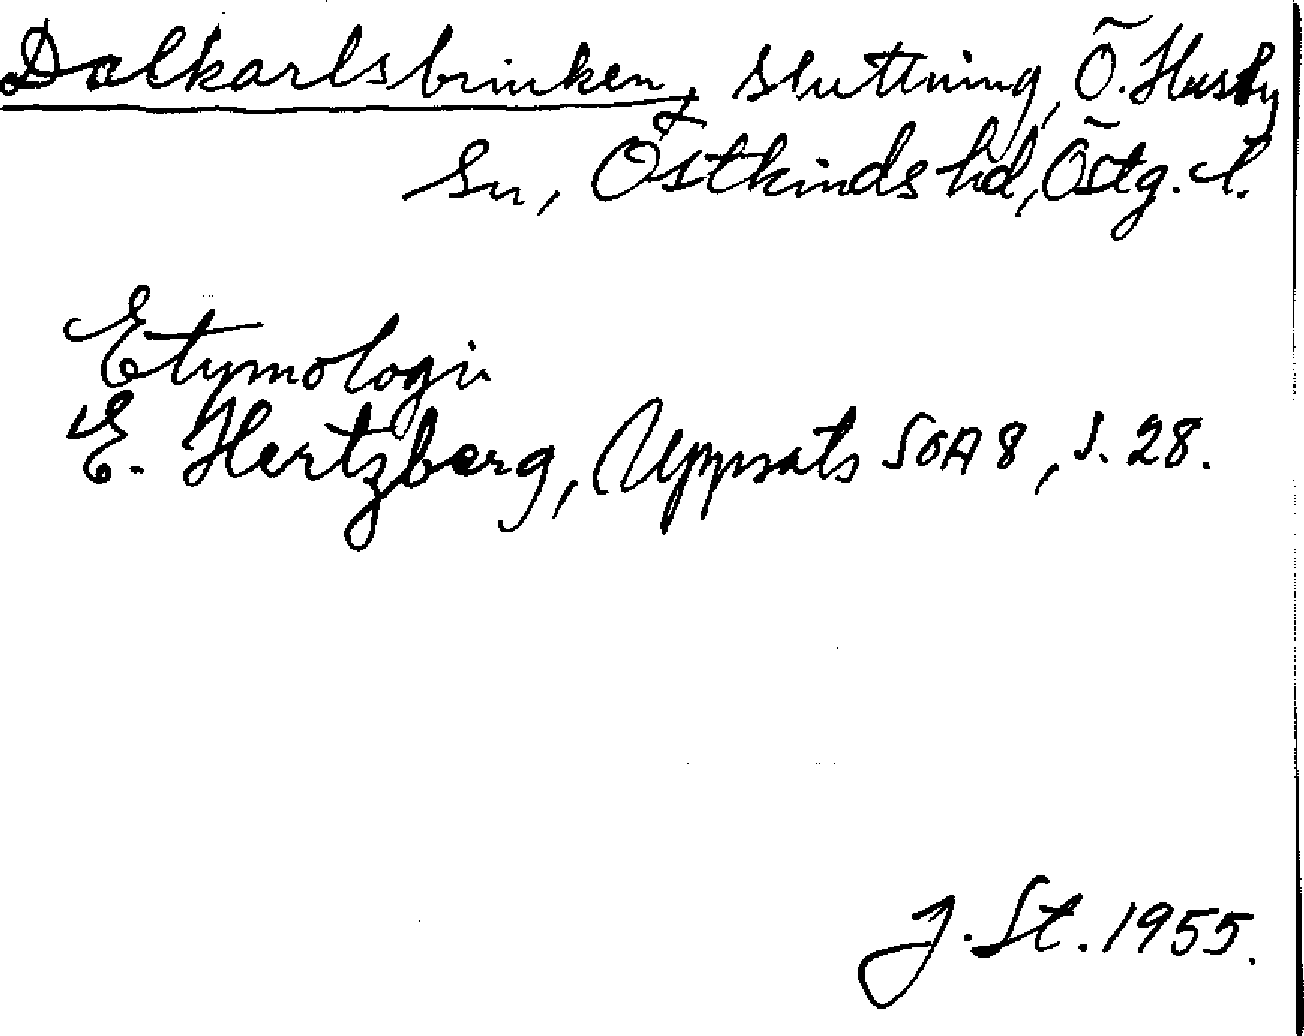 Dalkarlsbrinken, sluttning, Ö. Husby
sn, Östkinds hd, Östg. l.
Etymologi
E. Hertzberg, Uppsats SOA 8, s. 28.
J. St. 1955.